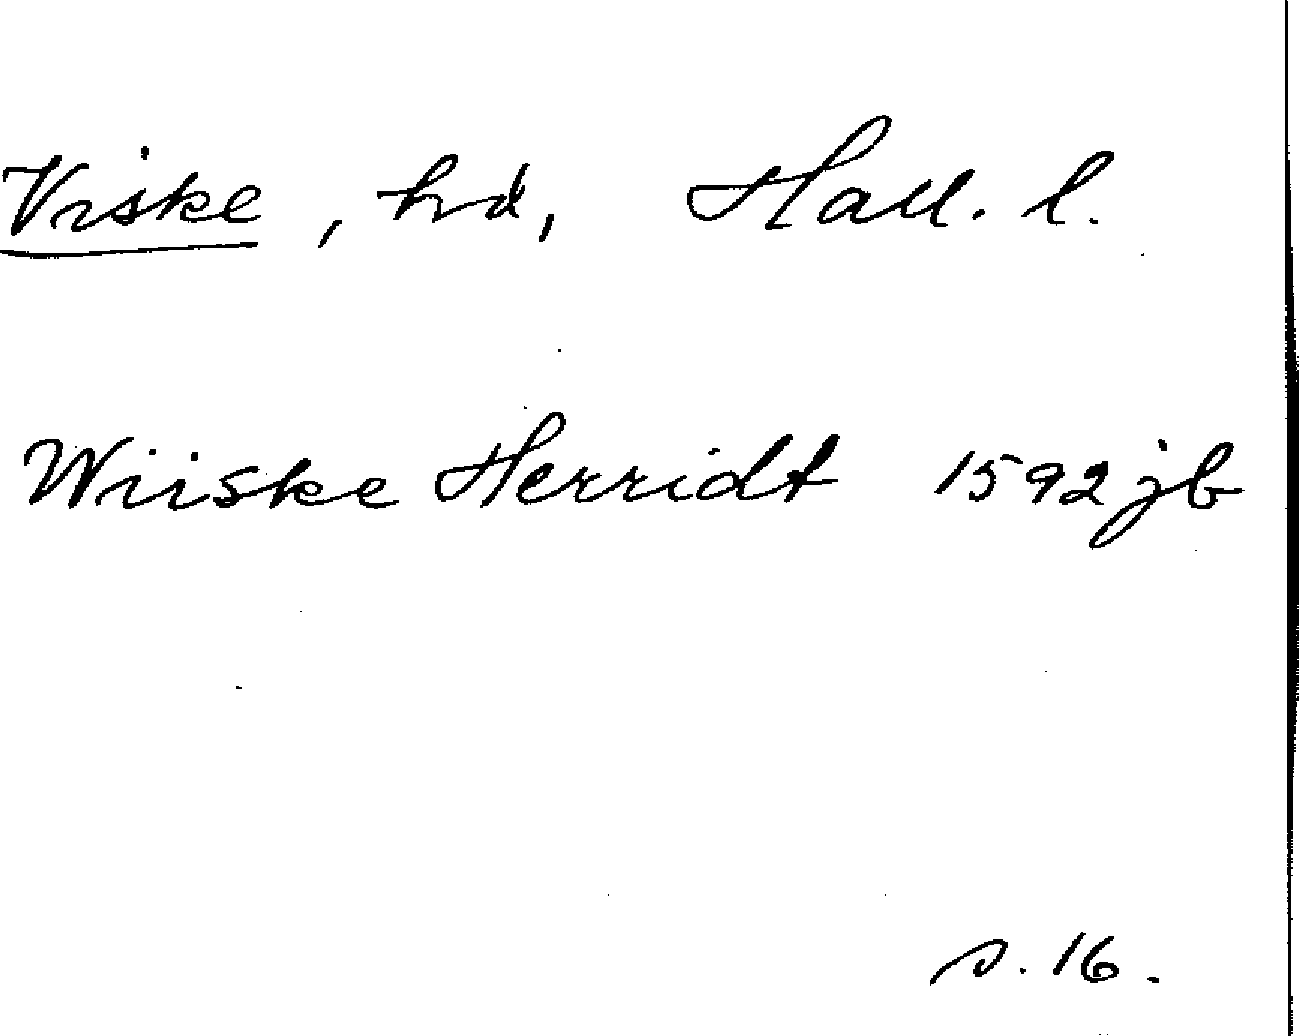 Viske, hd, Hall. l.
Wiiske Herridt 1592 jb
s. 16.